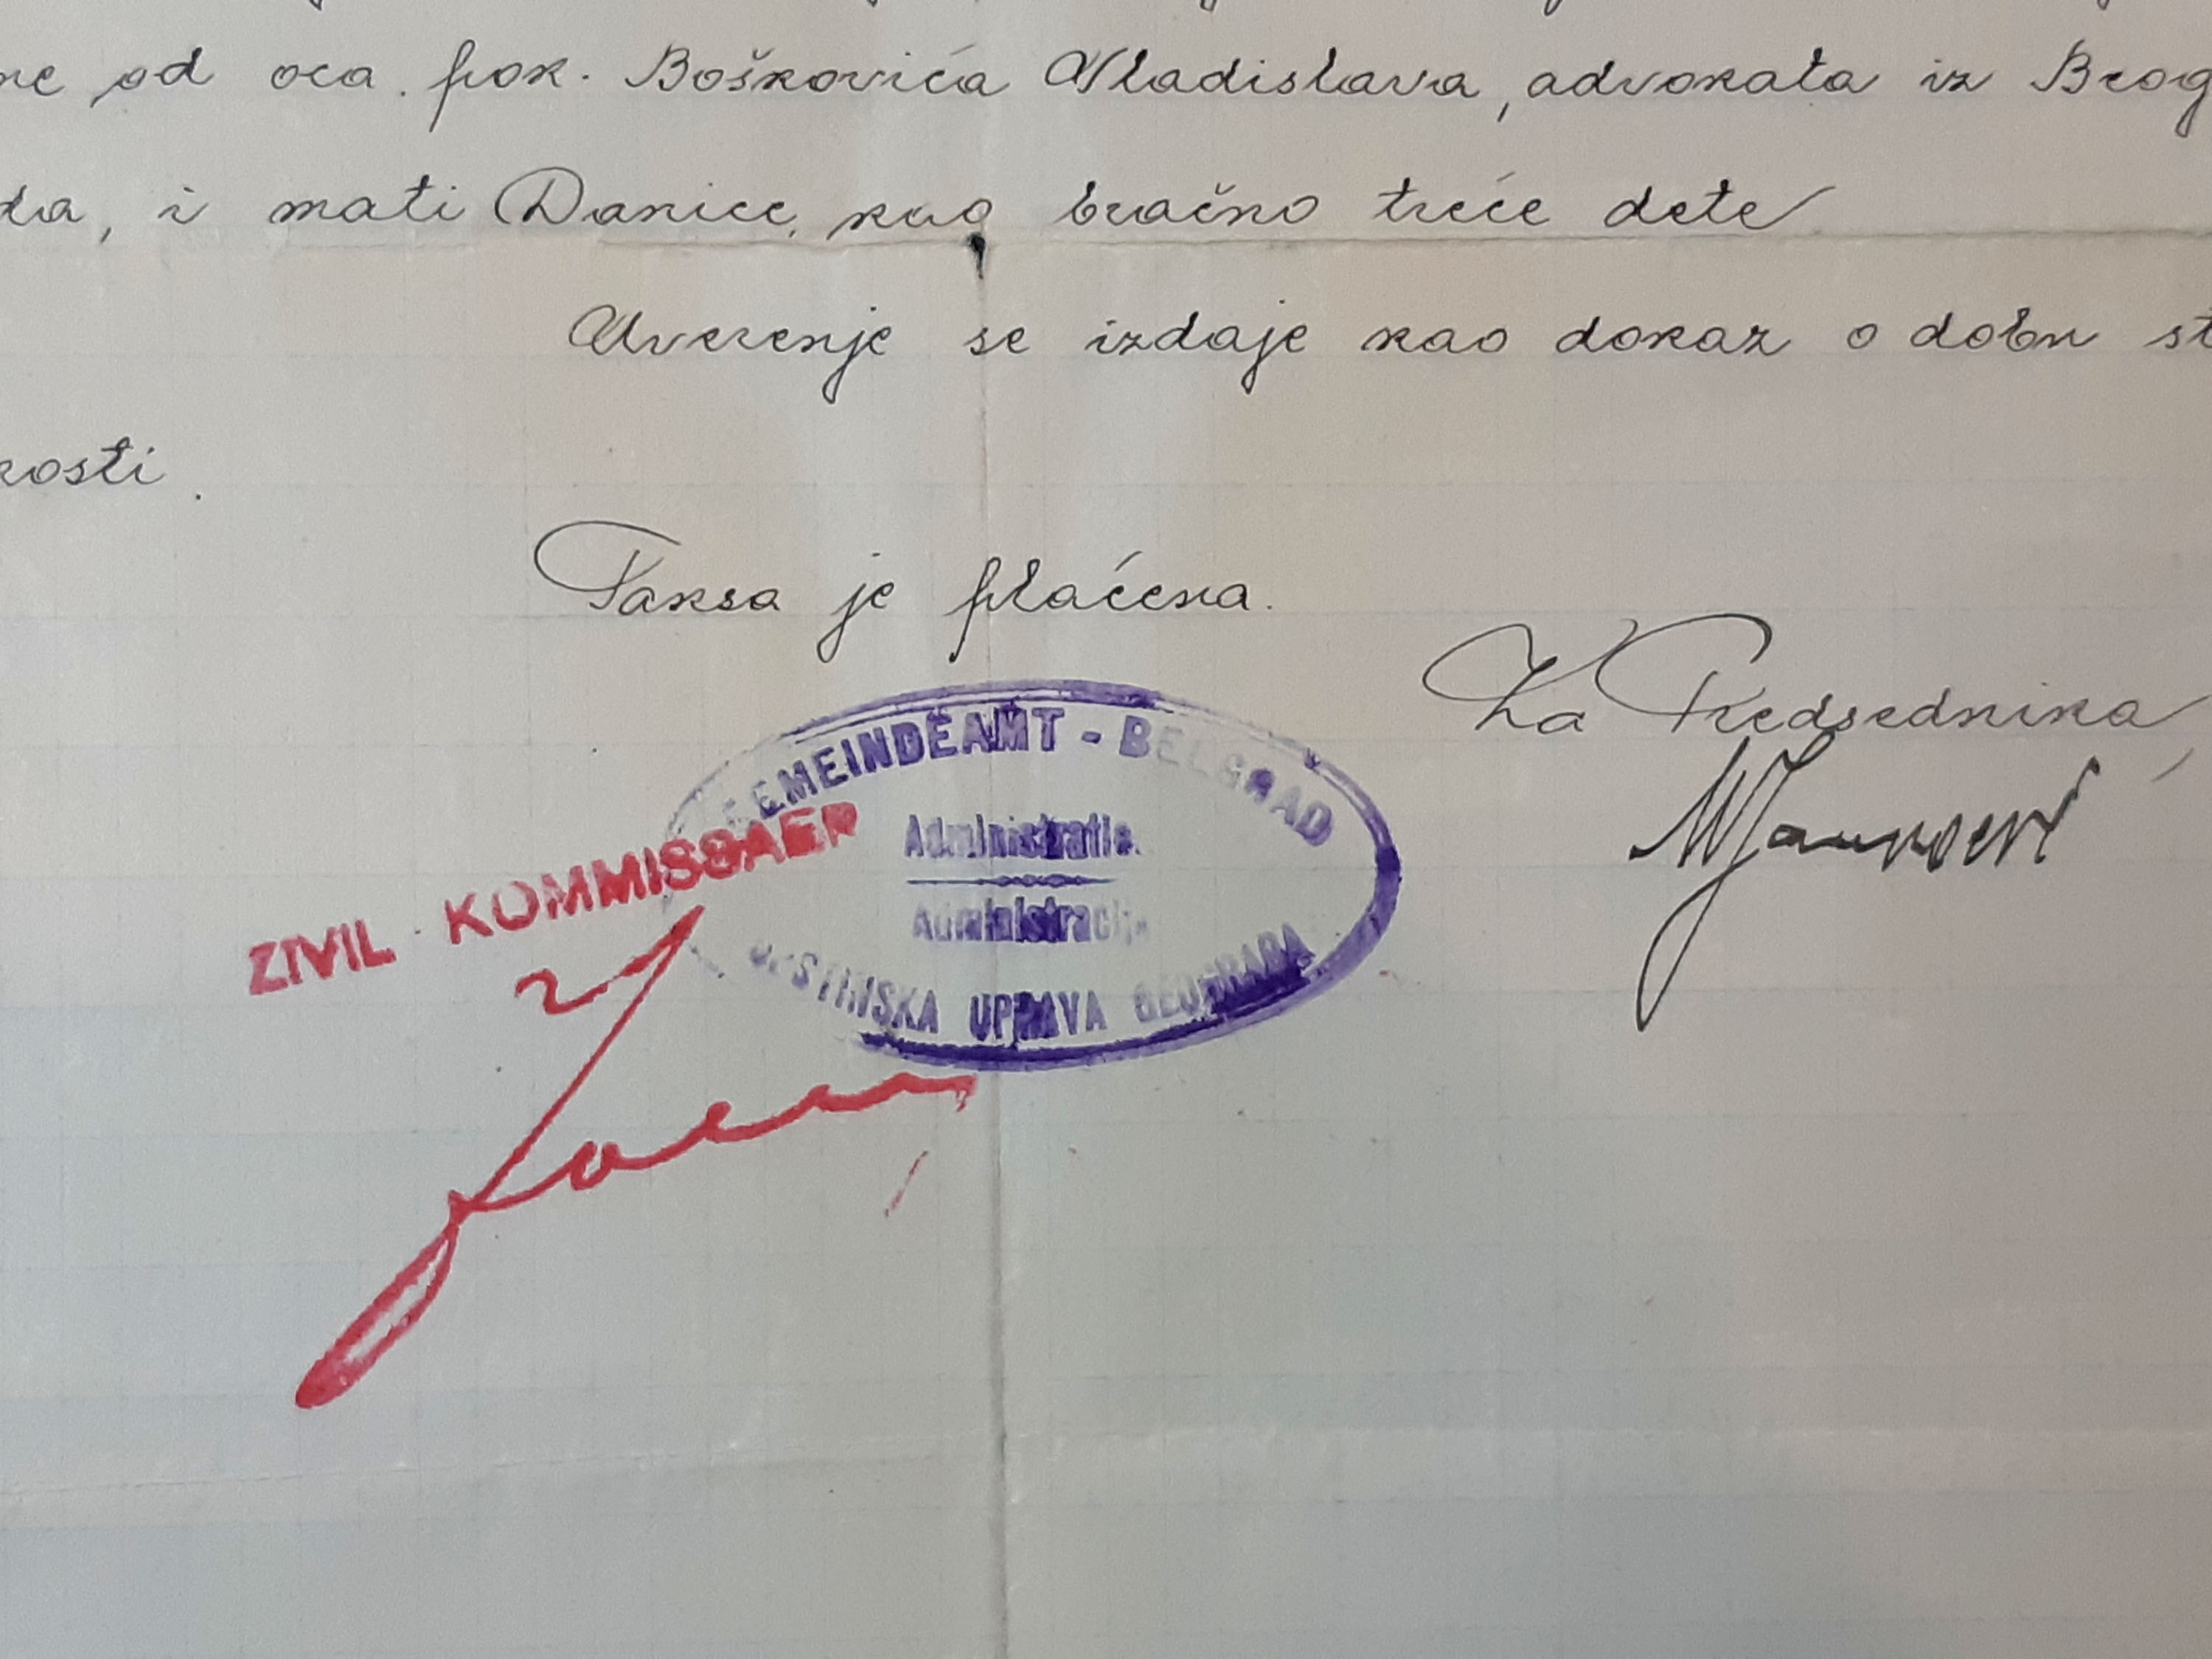 od oca pok. Boškovića Vladislava, advokata iz Beog
da, i mati Danice, kao bračno treće dete
Uverenje se izdaje kao dokaz o dobu st
rosti.
Taksa je plaćena.
Za Predsednika,
GEMEINDEAMT - BELGRAD
Administratio.
Administracija
OPŠTINSKA UPRAVA BEOGRADA
ZIVIL KOMMISSAER